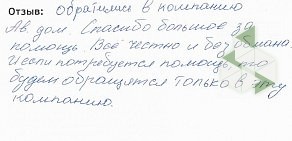 Отзыв: обратились в компанию
Ав. дом. Спасибо большое за
помощь. Всё честно и без обмана.
И если потребуется помощь, то
будем обращятся только в эту
компанию.